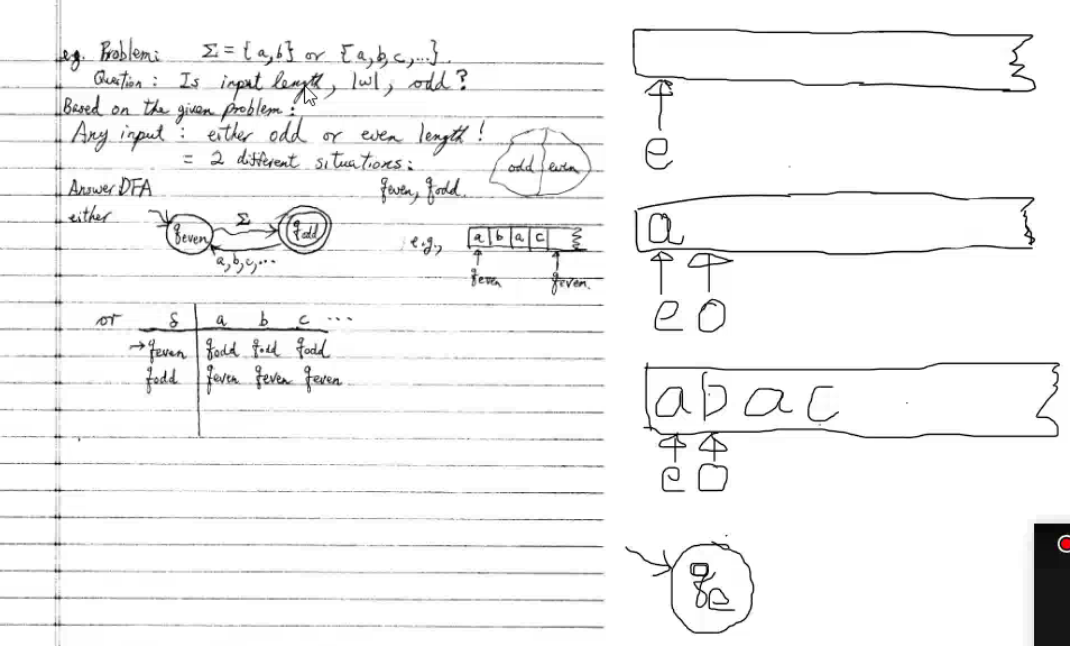 e.g. Problem: Σ = {a,b} or {a,b,c,...}.
Question: Is input length, |w|, odd?
Based on the given problem:
Any input: either odd or even length!
= 2 different situations:
odd even
Answer DFA qeven, qodd.
either
qeven Σ qodd
a,b,c,...
e.g., a b a c
qeven qeven.
or δ a b c ...
→qeven qodd qodd qodd
qodd qeven qeven qeven
e
a
e o
a b a c
e o
qe